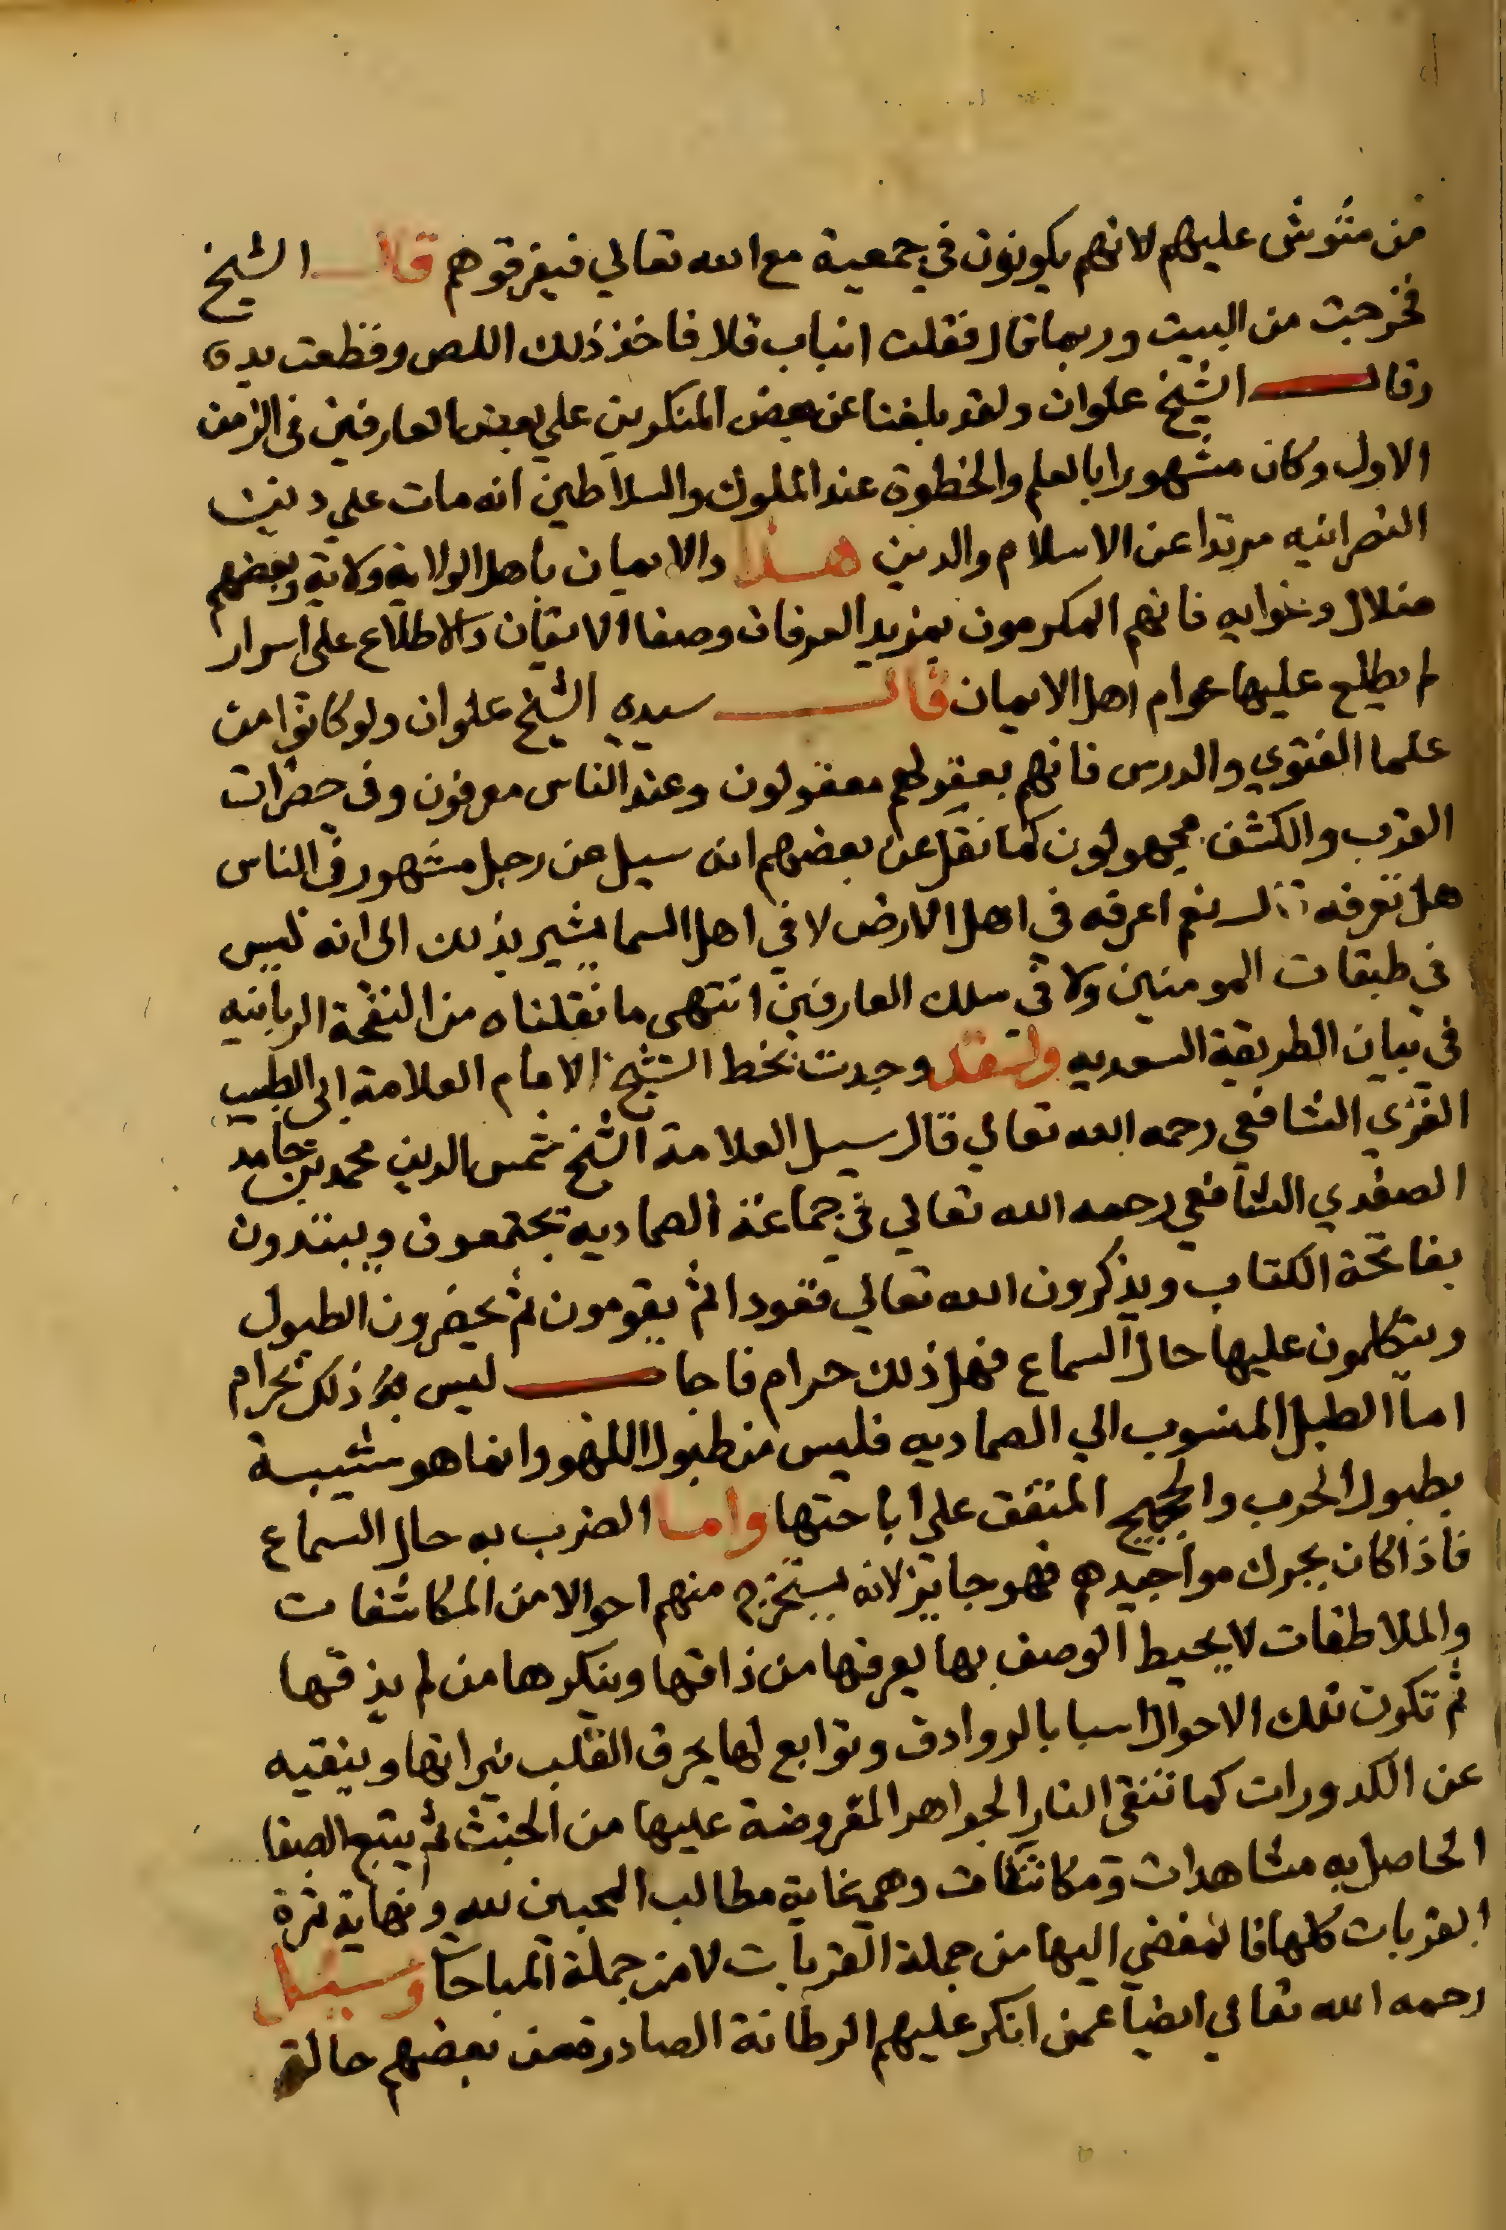 من مشوش عليهم لانهم يكونون في جمعية مع الله تعالي فيفرقوهم قال الشيخ
فخرجت من البيت وربما قال فقلت انباب فلا فاخذ ذلك اللص وقطعت يده
وقال الشيخ علوان ولقد بلغنا عن بعض المنكرين علي بعض العارفين في الزمن
الاول وكان مشهورا بالعلم والخطوة عند الملوك والسلاطين انه مات علي دين
النصرانيه مرتدا عن الاسلام والدين هذا والايمان باهل الولاية ولاية وبغضهم
ضلال وغوايه فانهم المكرمون بمزيد العرفان وصفا الايقان والاطلاع على اسرار
لم يطلع عليها عوام اهل الايمان قال سيدي الشيخ علوان ولو كانوا من
علما الفتوي والدرس فانهم بعقولهم معقولون وعند الناس معرفون وفي حضرات
القرب والكشف مجهولون كما نقل عن بعضهم انه سيل عن رجل مشهور في الناس
هل تعرفه قال نعم اعرفه في اهل الارض لا في اهل السما يشير بذلك الى انه ليس
في طبقات المومنين ولا في سلك العارفين انتهى ما نقلناه من النفحة الربانيه
في بيان الطريقة السعديه ولقد وجدت بخط الشيخ الامام العلامة ابي الطيب
الغزي الشافعي رحمه الله تعالي قال سيل العلامة الشيخ شمس الدين محمد بن حامد
الصفدي الشافعي رحمه الله تعالي في جماعة الصماديه يجتمعون ويبتدون
بفاتحة الكتاب ويذكرون الله تعالي قعودا ثم يقومون ثم يحضرون الطبول
ويتكلمون عليها حال السماع فهل ذلك حرام فاجاب ليس ذلك بحرام
اما الطبل المنسوب الي الصماديه فليس من طبول اللهو وانما هو شبيه
بطبول الحرب والحجيج المتفق على اباحتها واما الضرب به حال السماع
فاذا كان يحرك مواجيدهم فهو جايز لانه يستخرج منهم احوالا من المكاشفات
والملاطفات لا يحيط الوصف بها يعرفها من ذاقها وينكرها من لم يذقها
ثم تكون تلك الاحوال اسبابا لروادف وتوابع لها يحرق القلب نيرانها وينقيه
عن الكدورات كما تنقى النار الجواهر المعروضة عليها من الخبث ثم يتبع الصفا
الحاصل به مشاهدات ومكاشفات وهي غاية مطالب المحبين لله ونهاية ثمرة
القربات كلها فالمفضي اليها من جملة القربات لا من جملة المباحات وسيئل
رحمه الله تعالي ايضا عمن انكر عليهم الرطانة الصادرة من بعضهم حالة